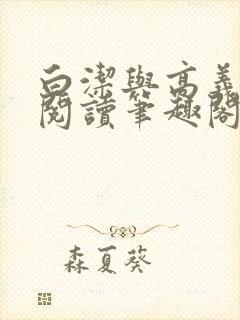 白潔與高義
閱讀筆趣閣
森夏葵